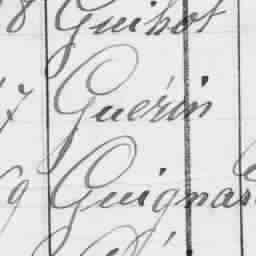 8 Guihot
7 Guérin
9 Guignar